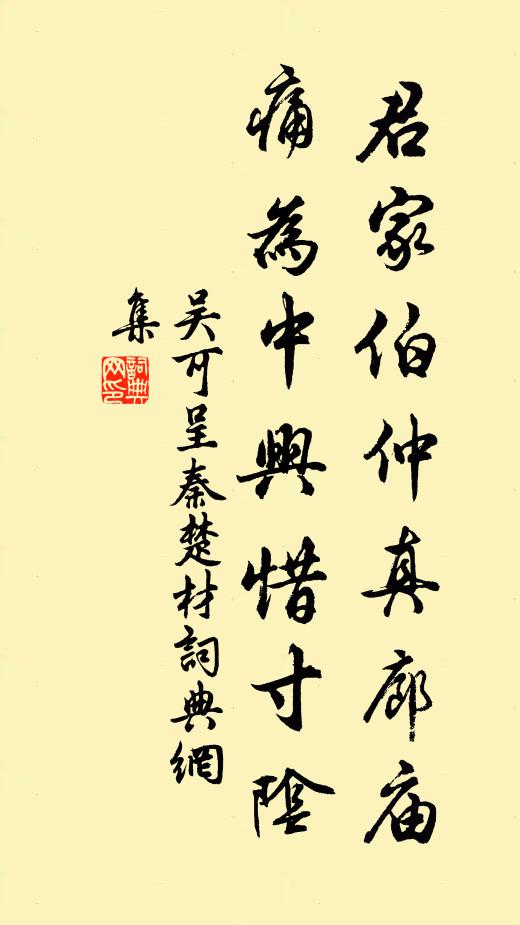 君家伯仲真廊庙
痛為中興惜寸陰
吴可呈秦楚材詞典網
集
詞典網印